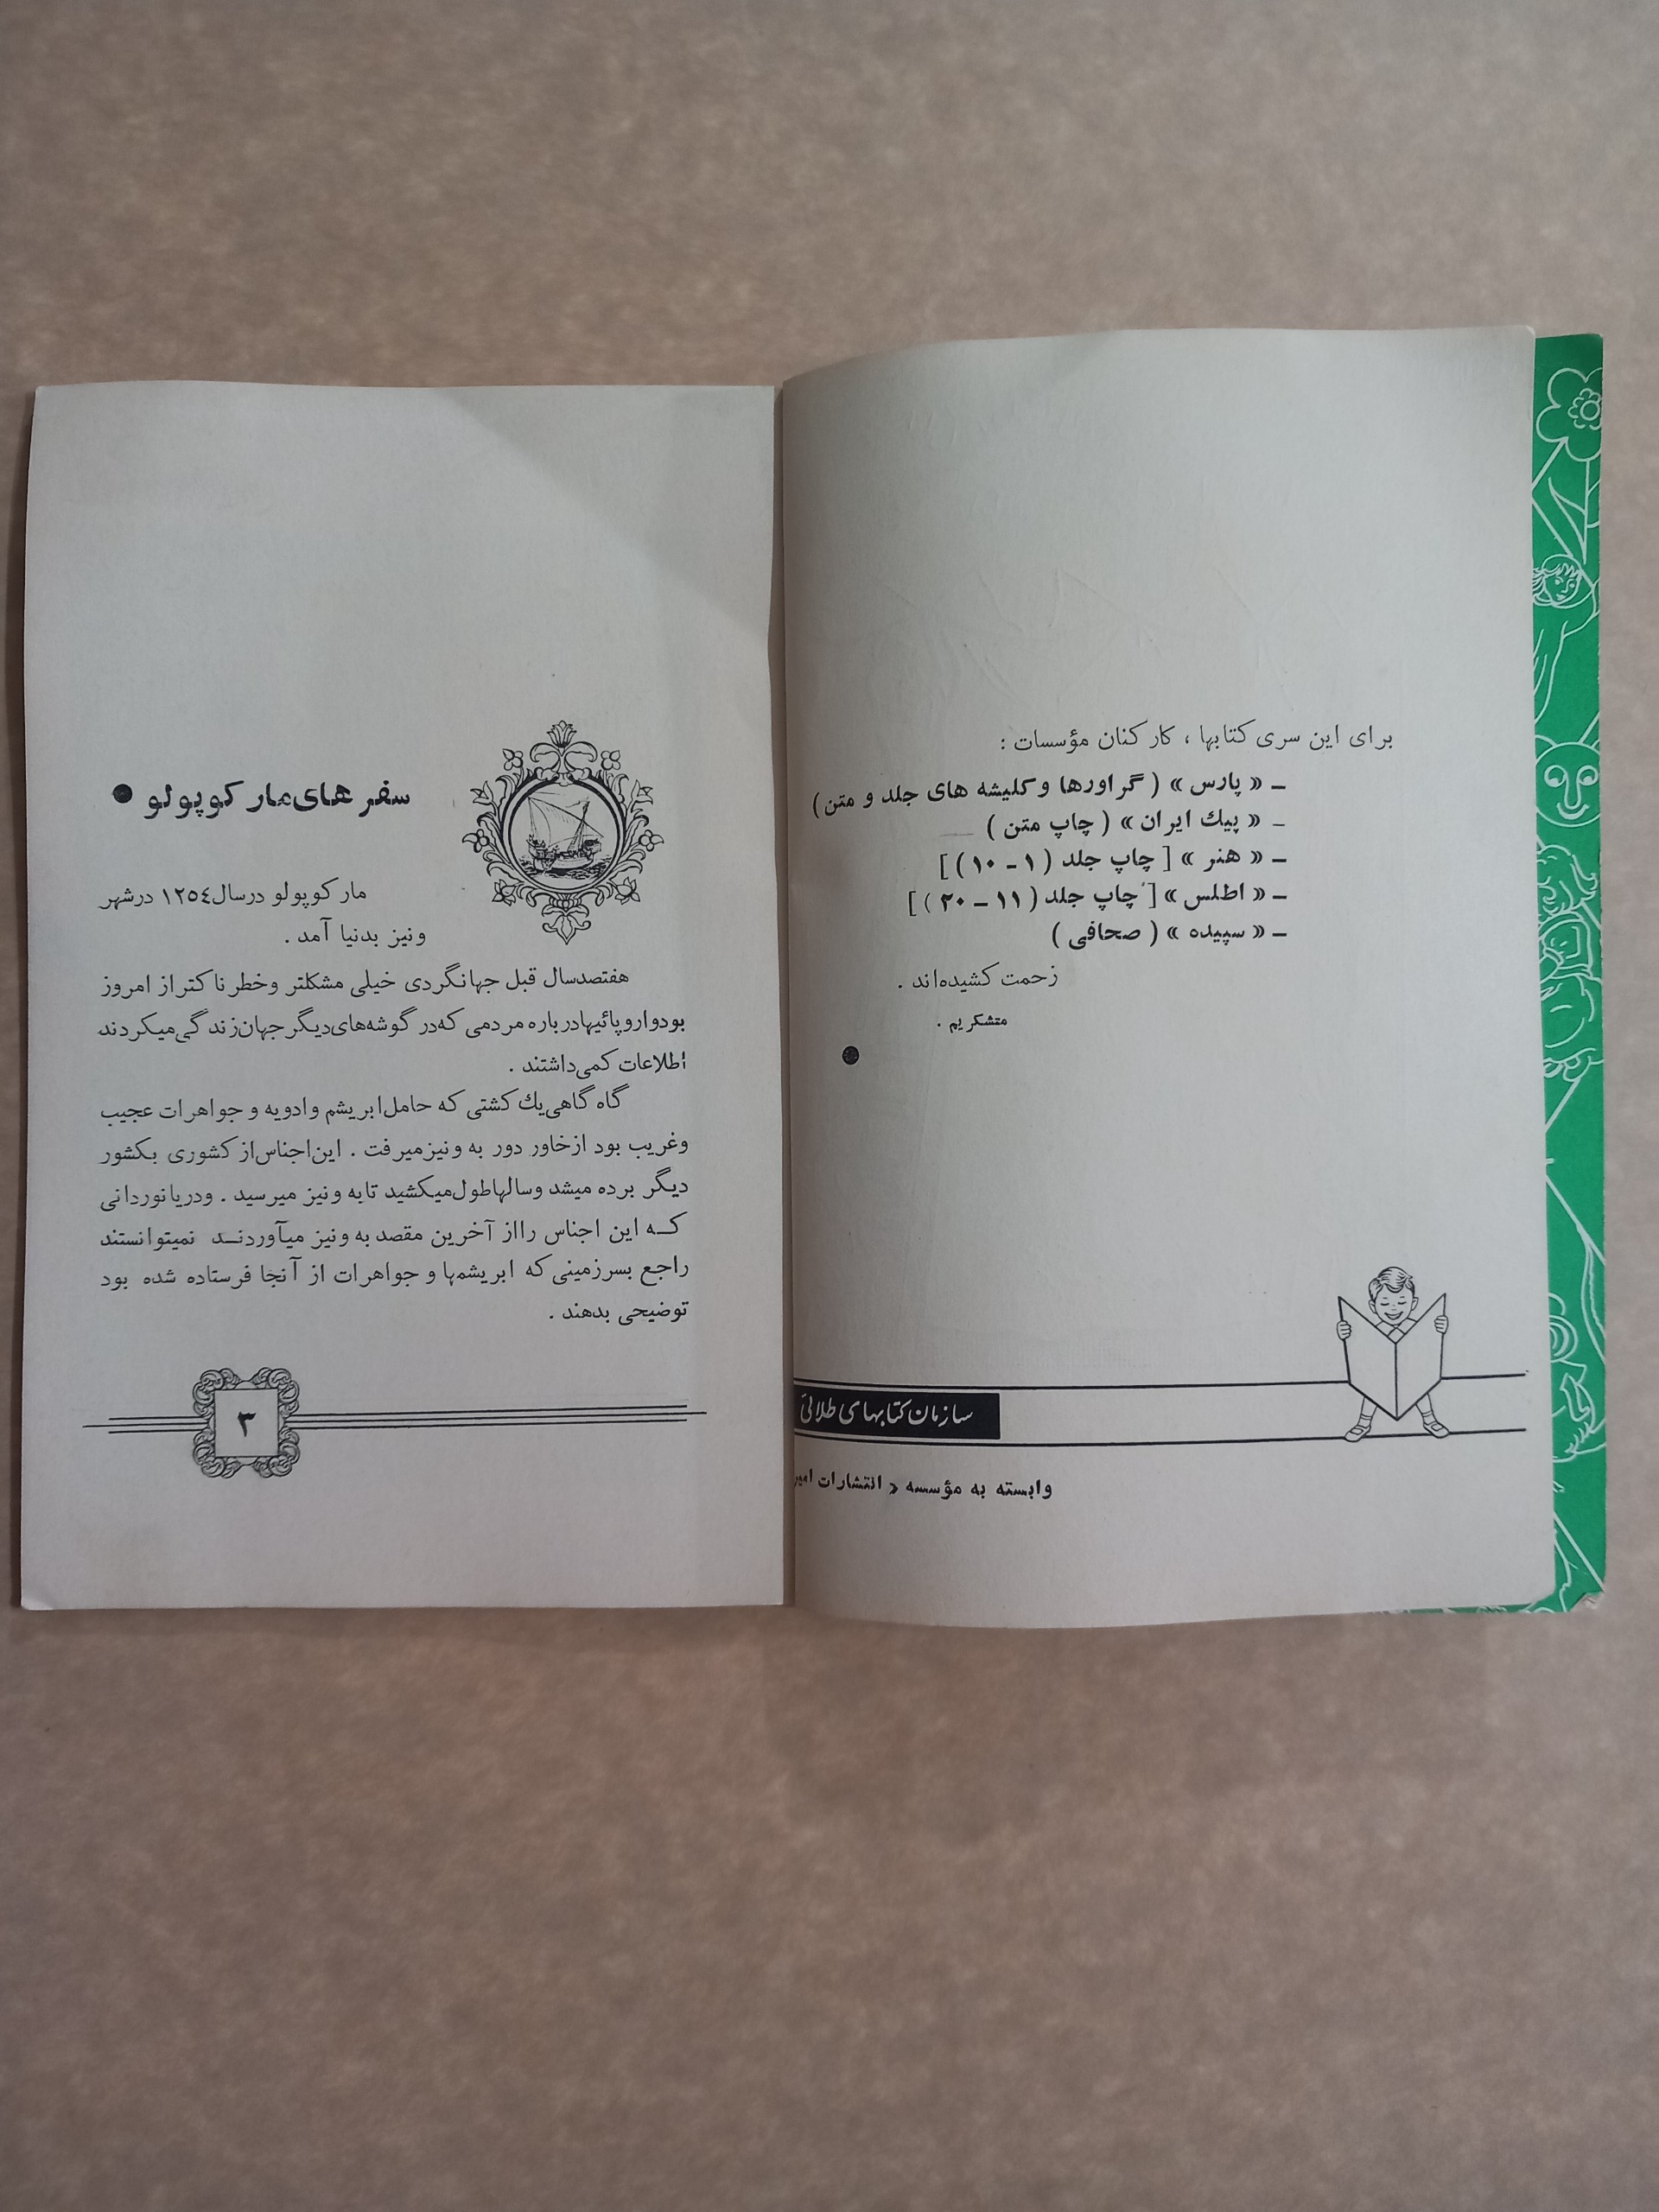 برای این سری کتابها ، کارکنان مؤسسات :
ـ « پارس » ( گراورها و کلیشه های جلد و متن )
ـ « پیك ایران » ( چاپ متن )
ـ « هنر » [ چاپ جلد ( ۱ ـ ۱۰ ) ]
ـ « اطلس » [ چاپ جلد ( ۱۱ ـ ۲۰ ) ]
ـ « سپیده » ( صحافی )
زحمت کشیده‌اند .
متشکریم .
سازمان کتابهای طلائی
وابسته به مؤسسه « انتشارات امیر
سفرهای مارکوپولو
مارکوپولو درسال ۱۲۵٤ درشهر
ونیز بدنیا آمد .
هفتصدسال قبل جهانگردی خیلی مشکلتر وخطرناکتراز امروز
بودواروپائیهادرباره مردمی که‌در گوشه‌های‌دیگر جهان‌زندگی‌میکردند
اطلاعات کمی‌داشتند .
گاه گاهی‌یك کشتی که حامل‌ابریشم وادویه و جواهرات عجیب
وغریب بود ازخاور دور به ونیزمیرفت . این‌اجناس‌از کشوری بکشور
دیگر برده میشد وسالهاطول‌میکشید تابه ونیز میرسید . ودریانوردانی
کـه این اجناس رااز آخرین مقصد به ونیز میآوردنـد نمیتوانستند
راجع بسرزمینی که ابریشمها و جواهرات از آنجا فرستاده شده بود
توضیحی بدهند .
۳